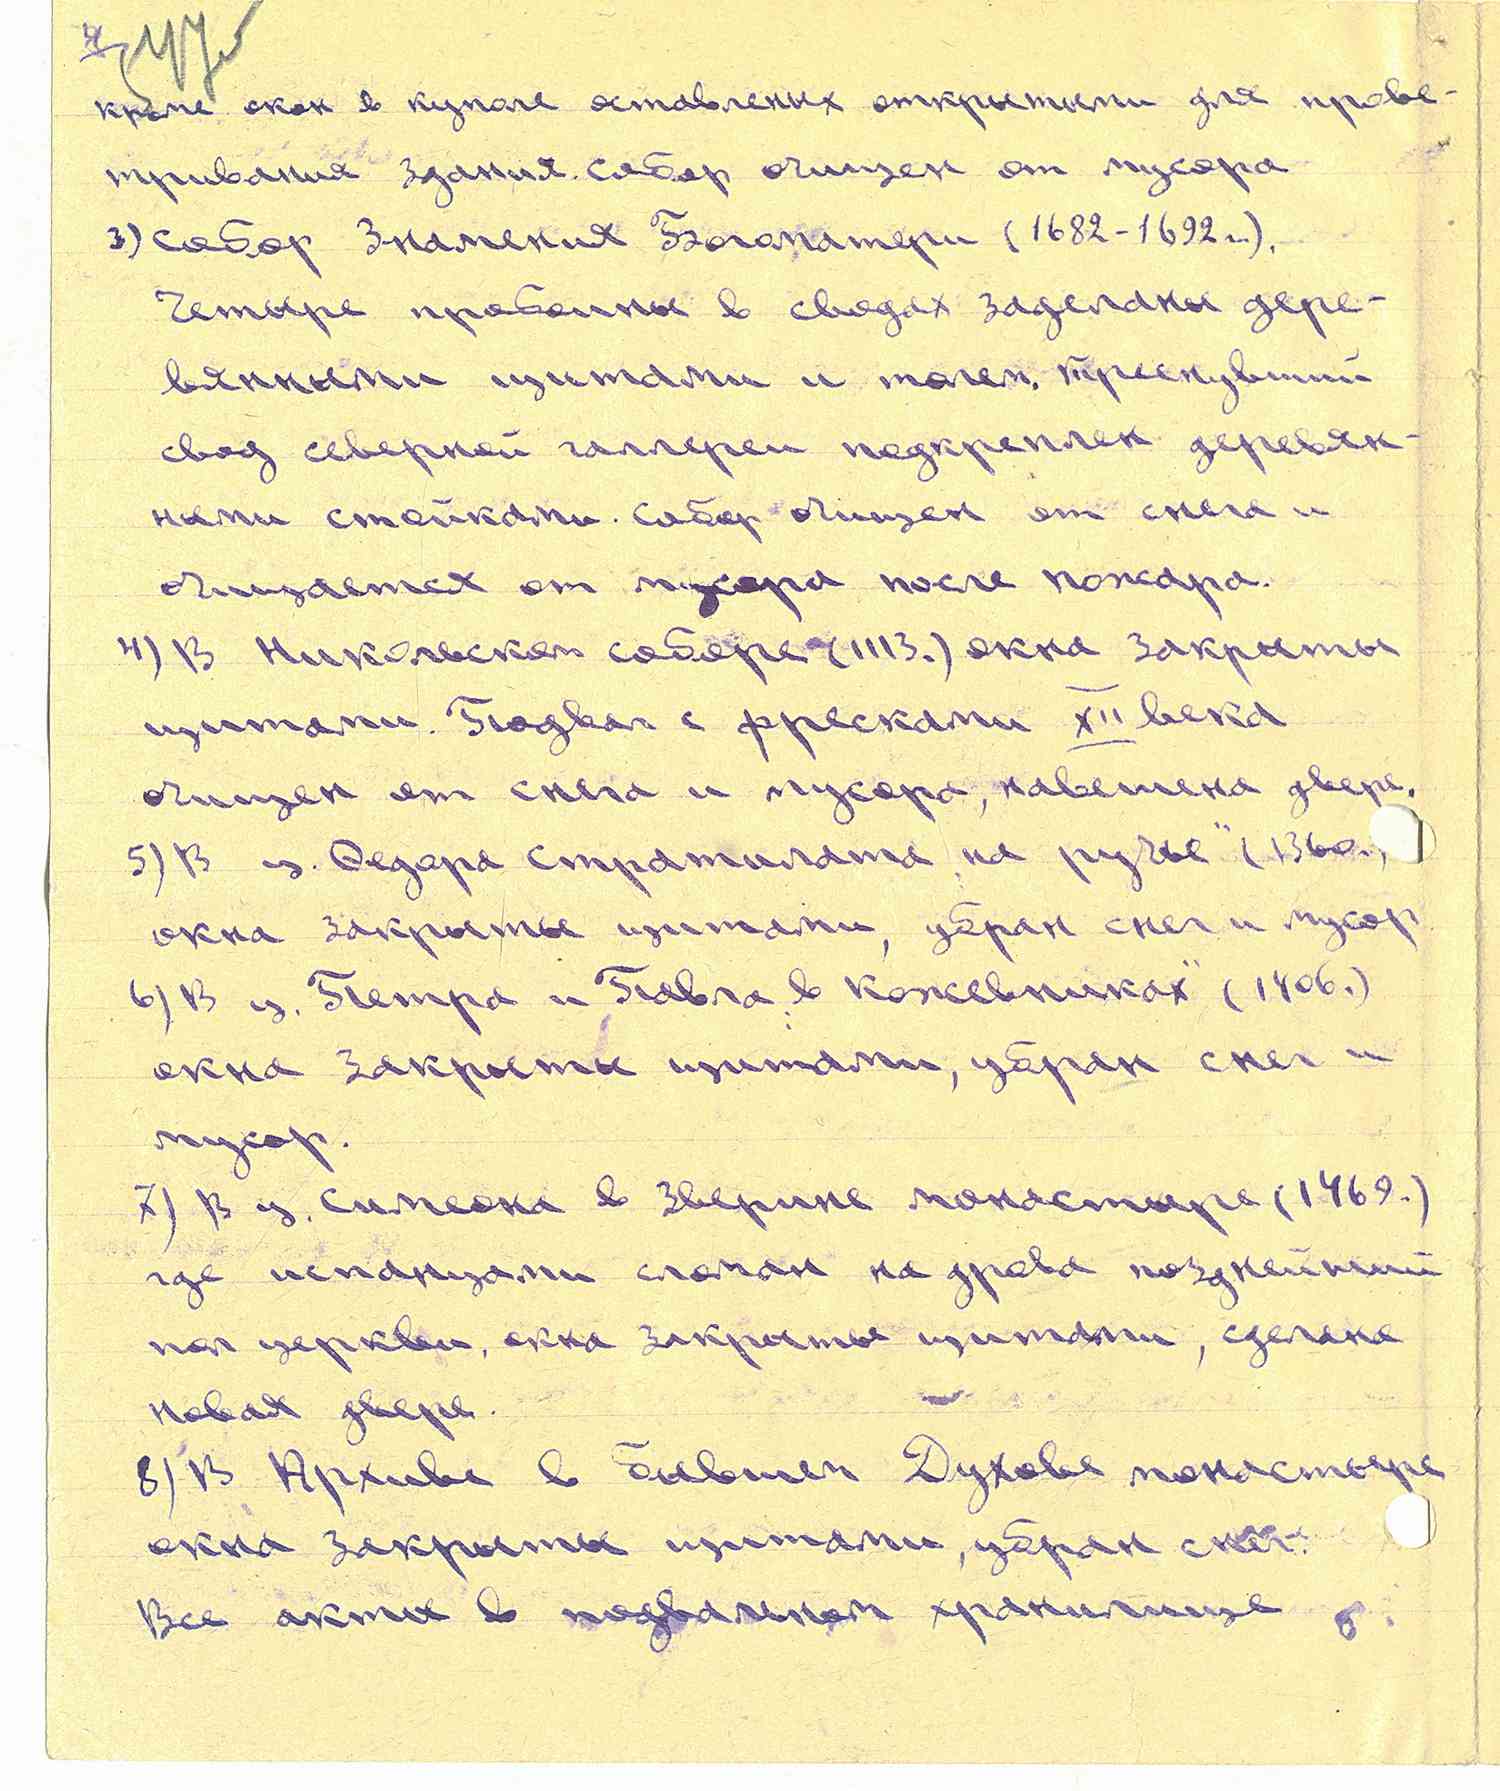 4
кроме окон в куполе оставленых открытыми для прове-
тривания здания. Собор очищен от мусора
3) Собор Знамения Богоматери (1682-1692 г.).
Четыре пробоины в сводах заделаны дере-
вянными щитами и толем. Треснувший
свод северной галлереи подкреплен деревян-
ными стойками. Собор очищен от снега и
очищается от мусора после пожара.
4) В Никольском соборе (1113.) окна закрыты
щитами. Подвал с фресками XII века
очищен от снега и мусора, навешена дверь.
5) В ц. Федора Стратилата „на ручье" (1360.,
окна закрыты щитами, убран снег и мусор
6) В ц. Петра и Павла „в Кожевниках" (1406.)
окна закрыты щитами, убран снег и
мусор.
7) В ц. Симеона в Зверине монастыре (1469.)
где испанцами сломан на дрова позднейший
пол церкви, окна закрыты щитами, сделана
новая дверь.
8) В Архиве в бывшем Духове монастыре
окна закрыты щитами, убран снег.
Все акты в подвальном хранилище